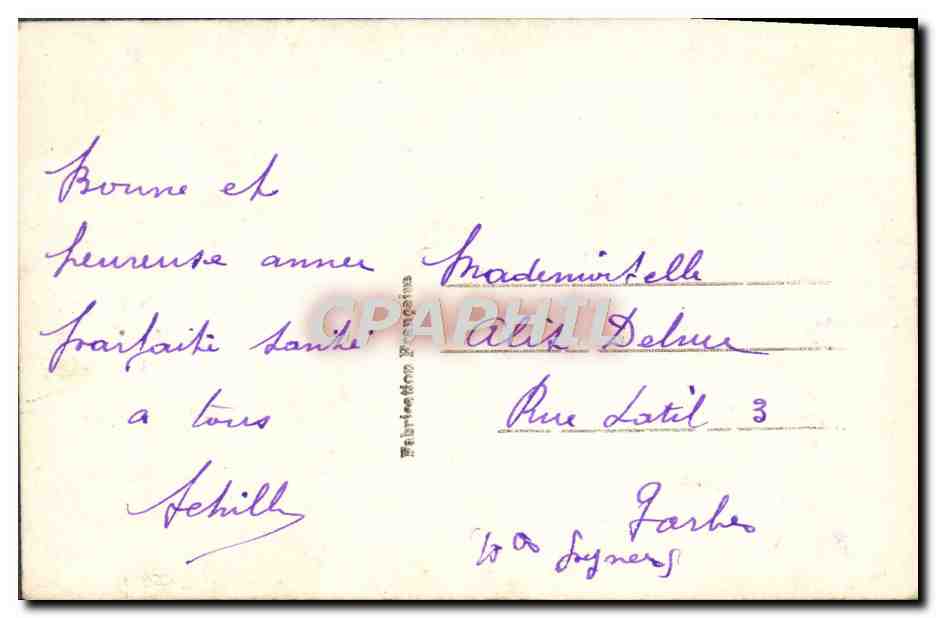 Bonne et
heureuse anneé
parfaite santé
a tous
Achille
Fabrication Française
CPAPHIL
Mademoiselle
Alis
Rue Latil 3
Tarbes